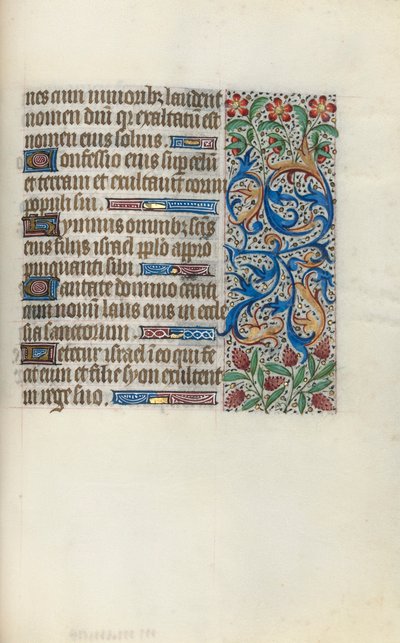 nes cum iunioribz laudent
nomen dni qr exaltatu est
nomen eius solius.
Confessio eius sup celu
et terram et exultauit cornu
populi sui.
Hymnus omnibz scis
eius filiis israel plo appro
pinquanti sibi.
Cantate domino canti
cum nouum laus eius in eccle
sia sanctorum.
Letetur israel i eo qui fe
cit eum et filie syon exultent
in rege suo.